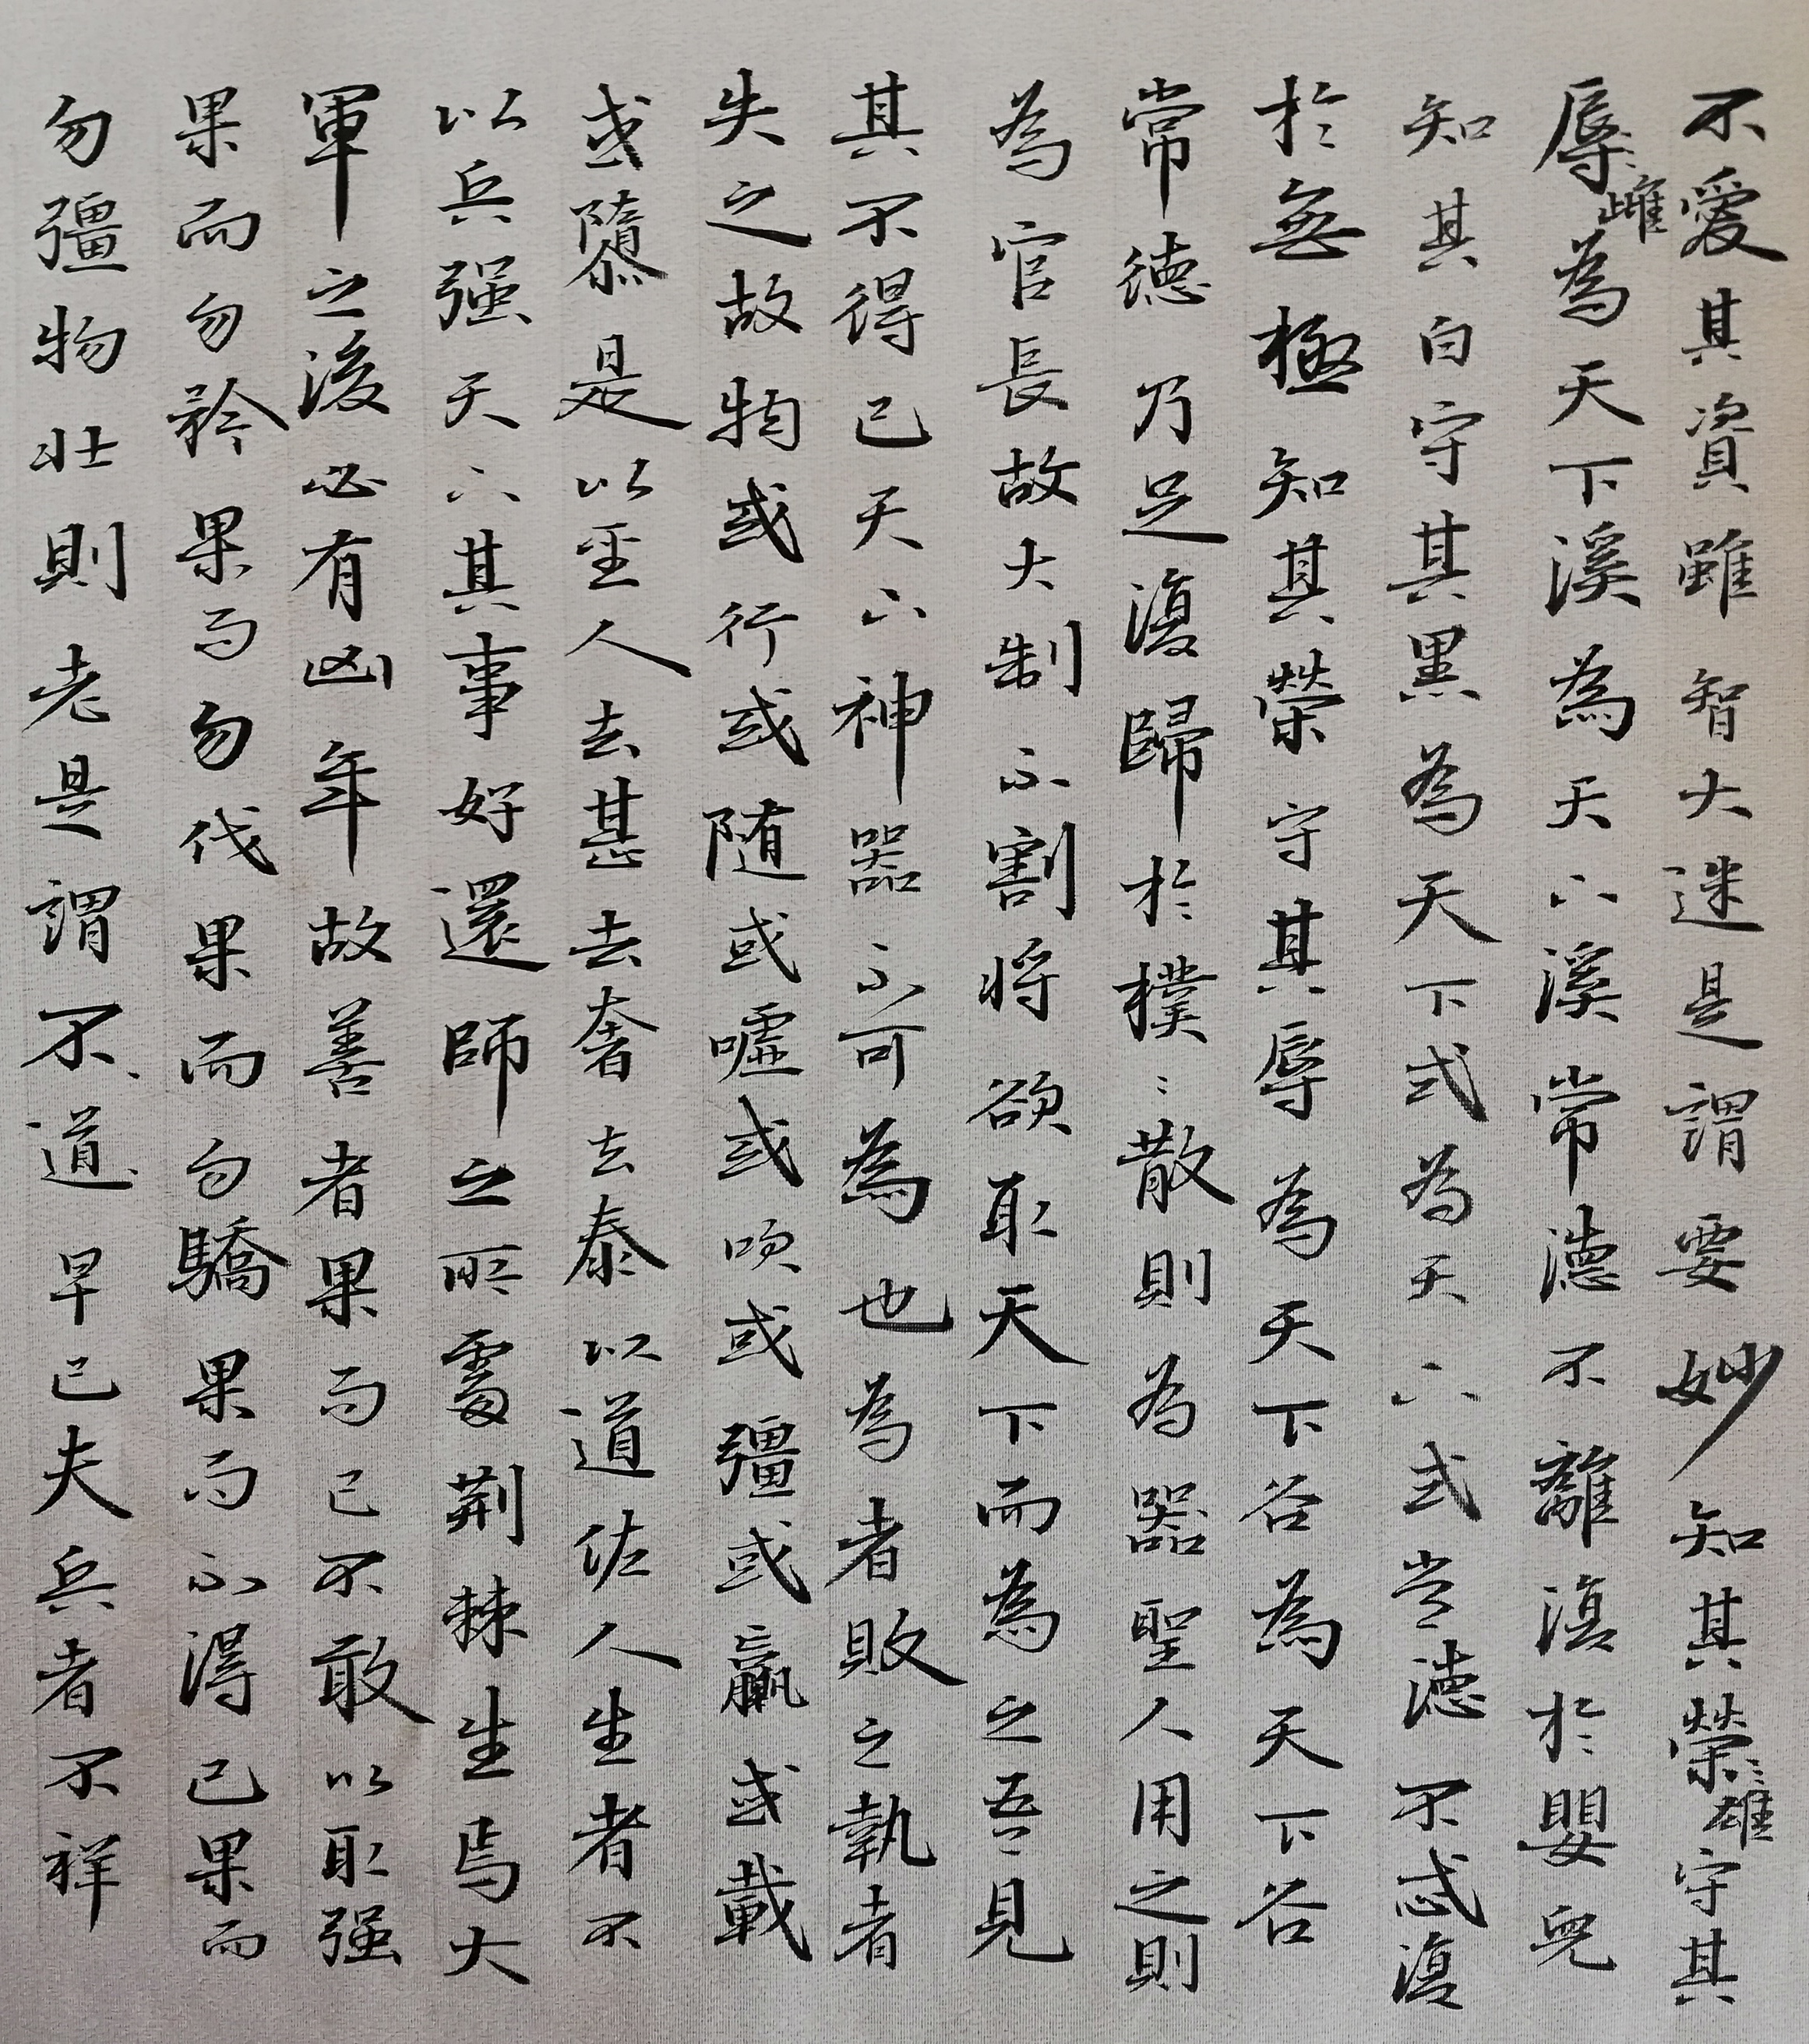 不愛其資雖智大迷是謂要妙知其榮〻雄守其
辱〻雌為天下溪為天下溪常德不離復於嬰兒
知其白守其黑為天下式為天下式常德不忒復
於無極知其榮守其辱為天下谷為天下谷
常德乃足復歸於樸〻散則為器聖人用之則
為官長故大制不割將欲取天下而為之吾見
其不得已天下神器不可為也為者敗之執者
失之故物或行或随或噓或吹或彊或羸或載
或隳是以聖人去甚去奢去泰以道佐人生者不
以兵强天下其事好還師之所處荆棘生焉大
軍之後必有凶年故善者果而已不敢以取强
果而勿矜果而勿伐果而勿驕果而不得已果而
勿彊物壯則老是謂不道早已夫兵者不祥